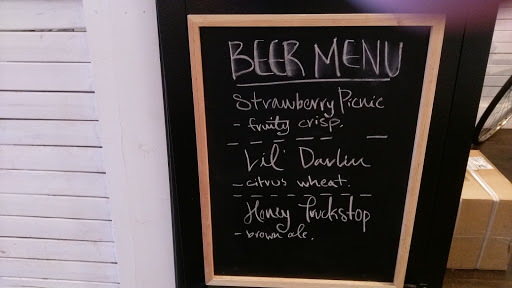 BEER MENU
Strawberry Picnic
- fruity crisp.
Lil' Darlin
- citrus wheat.
Honey Truckstop
- brown ale.